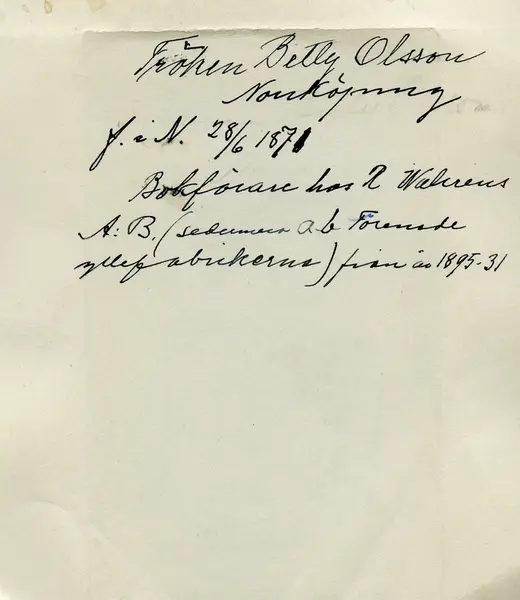 Fröken Betty Olsson
Norrköping
f. i N. 28/6 1871
Bokförare hos R Wahrens
A: B. (sedermera A b Förenade
yllefabrikerna) från år 1895-31